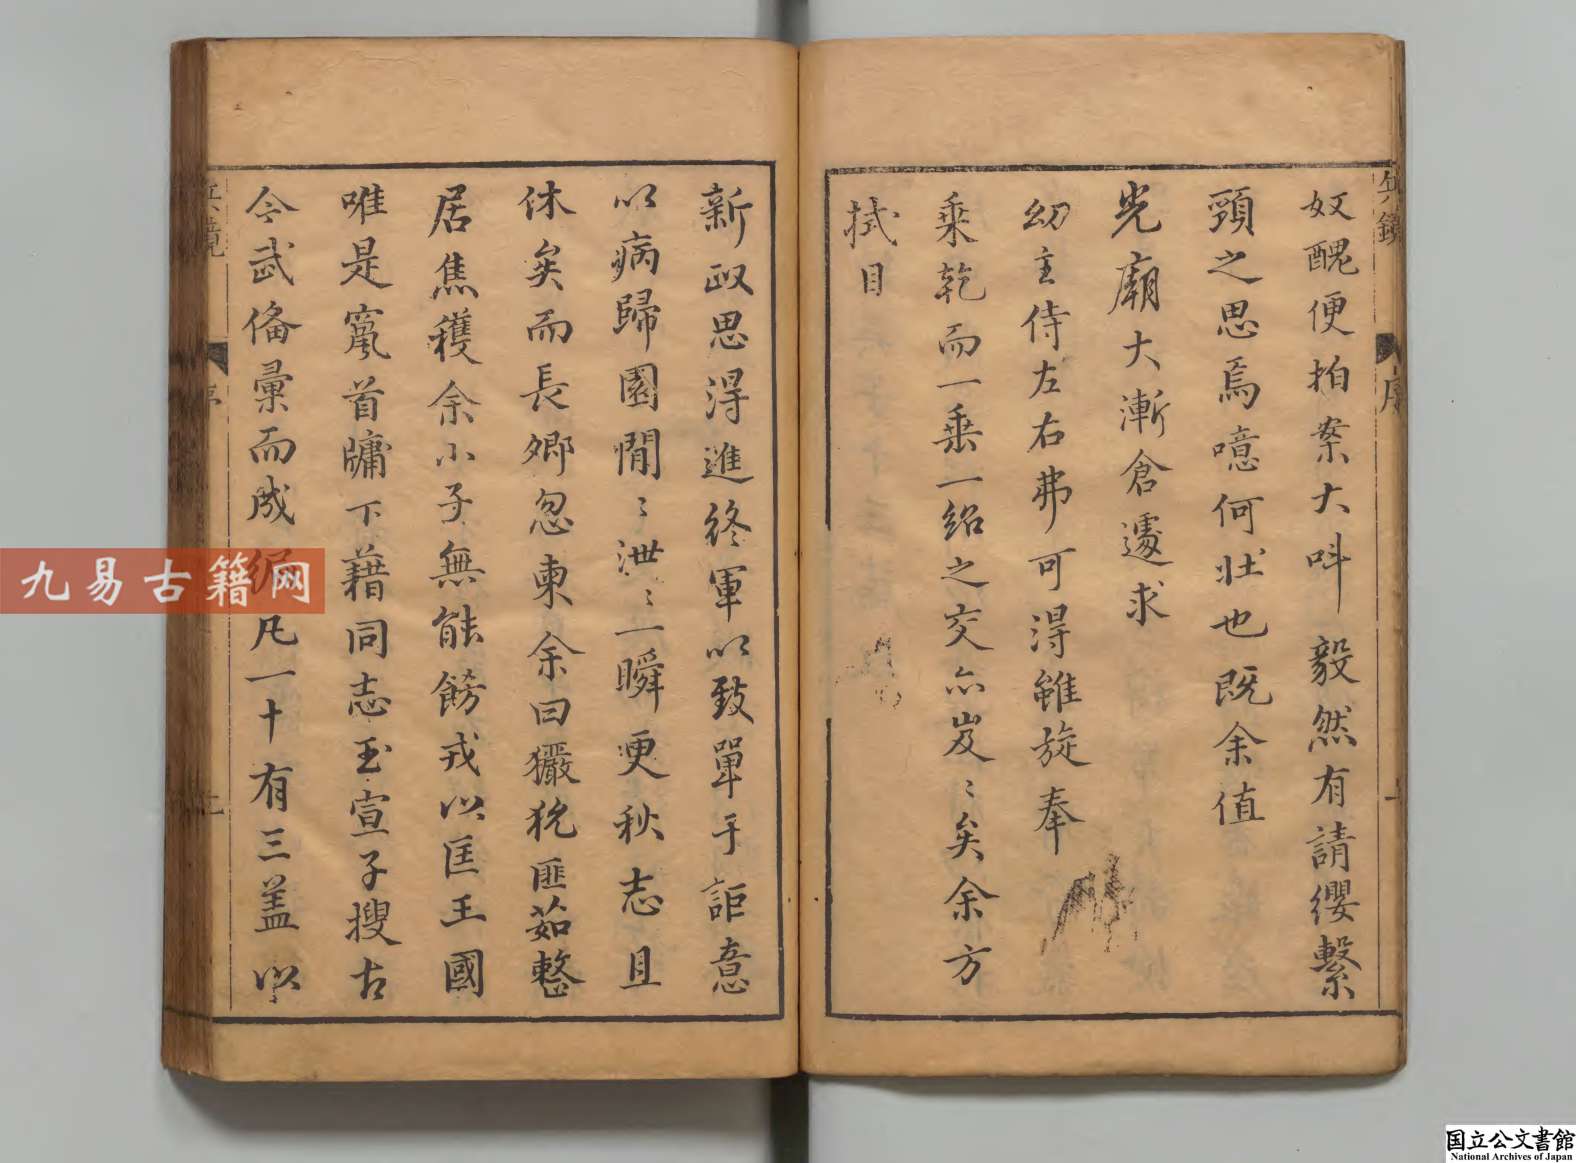 兵鏡
序
奴醜便拍案大呌毅然有請纓繫
頸之思焉噫何壯也既余值
光廟大漸倉遽求
幼主侍左右弗可得雖旋奉
乘乾而一乘一紹之交亦岌〻矣余方
拭目
新政思得進終軍以致單于詎意
以病歸園閒〻泄〻一瞬更秋志且
休矣而長鄉忽柬余曰玁狁匪茹整
居焦穫余小子無能餝戎以匡王國
唯是竄首牗下藉同志玉宣子搜古
今武俻彙而成編凡一十有三盖以
兵鏡
序
九易古籍网
国立公文書館
National Archives of Japan